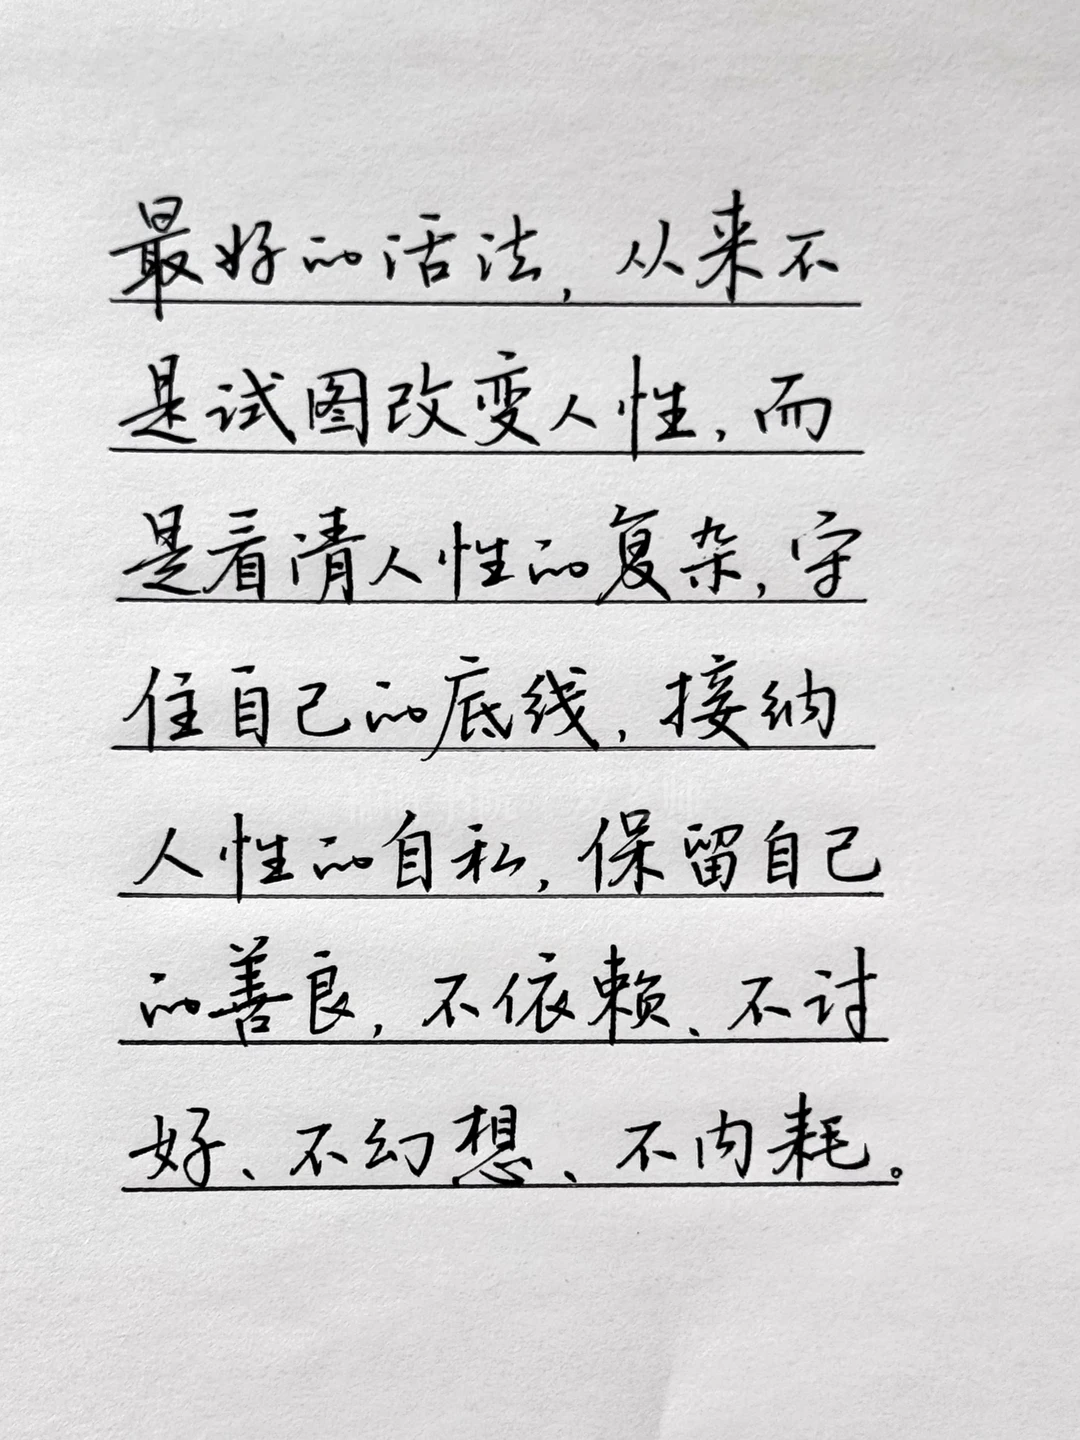 最好的活法，从来不
是试图改变人性，而
是看清人性的复杂，守
住自己的底线，接纳
人性的自私，保留自己
的善良，不依赖、不讨
好、不幻想、不内耗。